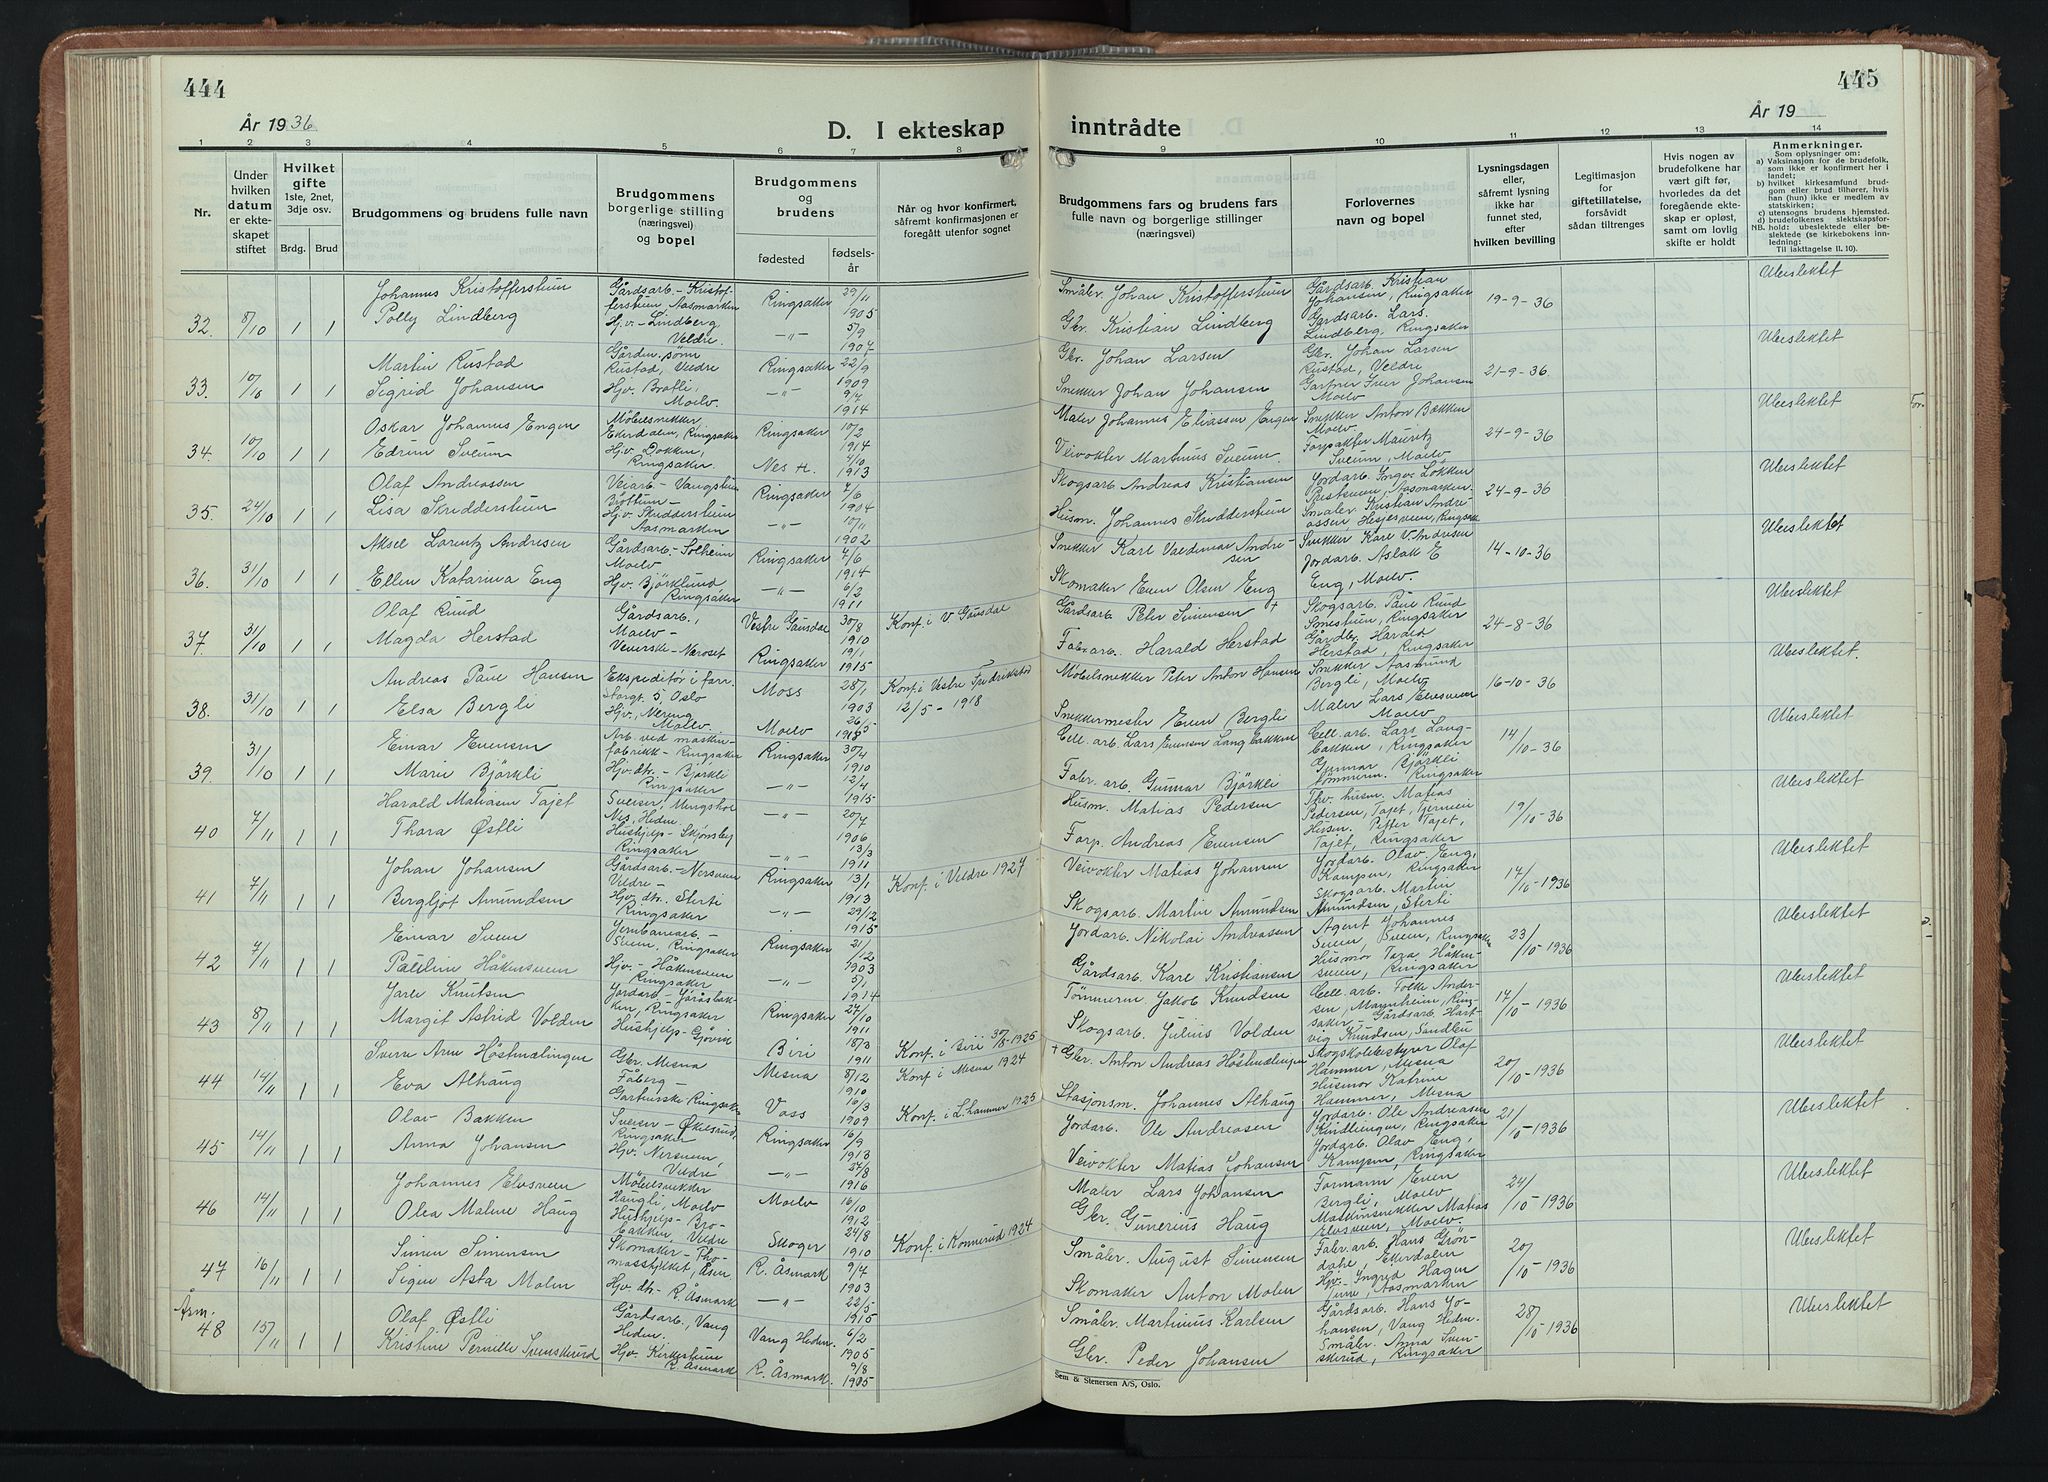 444
År 1936
D. I ekteskap
1 2 3 4 5 6 7 8
Nr.
Under
hvilken
datum
er ekte-
skapet
stiftet
Hvilket
gifte
1ste, 2net,
3dje osv.
Brdg. Brud
Brudgommens og brudens fulle navn
Brudgommens
borgerlige stilling
(næringsvei)
og bopel
Brudgommens
og
brudens
fødested
fødsels-
år
Når og hvor konfirmert,
såfremt konfirmasjonen er
foregått utenfor sognet
32. 8/10 1 1
Johannes Kristofferstuen
Polly Lindberg
Gårdsarb. - Kristof-
ferstuen Aasmarken
Hjv. - Lindberg
Veldre.
Ringsaker 29/11 1905
-"- 5/9 1907
33. 10/10 1 1
Martin Rustad
Sigrid Johansen
Gården. sønn
Rustad, Veldre
Hjv. Bratli,
Moelv.
Ringsaker 22/9 1909
-"- 9/7 1914
34. 10/10 1 1
Oskar Johannes Engen
Edrun Sveum
Möbelsnekker
Ekerdalen, Ringsaker
Hjv. Dokken,
Ringsaker.
Ringsaker 10/2 1914
Nes H. 4/10 1913
35. 24/10 1 1
Olaf Andreassen
Lisa Skredderstuen
Veiarb. - Vangstuen
Brøttum -
Hjv. Skredderstuen
Aasmarken
Ringsaker 7/6 1904
-"- 10/11 1902
36. 31/10 1 1
Aksel Lorentz Andresen
Ellen Katarina Eng
Gårdsarb. - Solheim
Moelv
Hjv. Bjørklund
Ringsaker
Ringsaker 7/6 1914
-"- 6/2 1911
37. 31/10 1 1
Olaf Ruud
Magda Herstad
Gårdsarb.,
Moelv -
Veverske - Næroset
Vestre Gausdal 30/8 1910
Ringsaker 19/1 1915
Konf. i V. Gausdal
38. 31/10 1 1
Andreas Paul Hansen
Elsa Bergli
Ekspeditör i farr.
Storgt. 5, Oslo
Hjv., Næring
Moelv.
Moss 28/1 1903
Moelv 26/5
Konf. i Vestre Fredrikstad
12/5 - 1918
39. 31/10 1 1
Einar Evensen
Marie Bjørkli
Arb. ved maskin-
fabrikk - Ringsaker
Hjv. dtr. - Bjørkli
Ringsaker
Ringsaker 30/4 1910
-"- 12/4 1915
40 7/11 1 1
Harald Matiasen Tajet
Thora Østli
Sveiser, Mengshol
Nes, Hedm.
Hushjelp - Skjønsby
Ringsaker
-"- 20/7 1906
-"- 13/3 1911
41 7/11 1 1
Johan Johansen
Bergljot Amundsen
Gårdsarb. - Nersveen
Veldre -
Hjv. dtr. Sterti
Ringsaker
Ringsaker 13/1 1913
-"- 29/12 1915
Konf. i Veldre 1927
42 7/11 1 1
Einar Sveen
Pauline Håkensveen
Jernbanearb. -
Sveen, Ringsaker
Hjv. - Håkensveen
Ringsaker
Ringsaker 21/12 1903
-"- 5/1 1914
43 8/11 1 1
Jarle Knutsen
Margit Astrid Volden
Jordarb. -
Ringsaker
Hushjelp - Gjøvik
Ringsaker 27/10 1911
Biri 18/3 1911
Konf. i Biri 30/5 - 1925
44 14/11 1 1
Sverre Arne Høstmælingen
Eva Alhaug
Gbr. Mesna
Fåberg -
Gartnerske Ringsaker
Mesna 8/12 1910
Voss 16/3 1909
Konf. i Mesna 1924
Konf. i L.hammer 1925
45 14/11 1 1
Olav Bakken
Anna Johansen
Sveiser - Økelsrud,
Ringsaker
Hjv. Nersveen,
Veldre
Ringsaker 16/9 1913
-"- 27/8 1916
46 14/11 1 1
Johannes Elvsveen
Olea Maline Haug
Möbelsnekker
Haugli, Moelv
Hushjelp - Bro-
bakken, Veldre
Moelv 16/10 1912
Skoger 24/8 1910
Konf. i Konnerud 1924
47 16/11 1 1
Simen Simensen
Signe Asta Molin
Skomaker - Tho-
masstykket, Åsm.
Hjv. dtr. - R. Åsmark
R. Åsmark 9/7 1903
-"- 22/5 1915
Åsm.
48 15/11 1 1
Olaf Østli
Kristine Pernille Svenskerud
Gårdsarb., Vang
Hedm.
Hjv. Kirkestuen
R. Åsmark
Vang Hedm. 6/2 1905
R. Åsmark. 9/8 1905
445
År 19
inntrådte
9 10 11 12 13 14
Brudgommens fars og brudens fars
fulle navn og borgerlige stillinger
(næringsvei)
Forlovernes
navn og bopel
Lysningsdagen
eller,
såfremt lysning
ikke har
funnet sted,
efter
hvilken bevilling
Legitimasjon
for
giftetillatelse,
forsåvidt
sådan tiltrenges
Hvis nogen av
brudefolkene har
vært gift før,
hvorledes da det
foregående ekte-
skap er opløst,
samt om lovlig
skifte er holdt
Anmerkninger.
Som oplysninger om:
a) Vaksinasjon for de brudefolk,
som ikke er konfirmert her i
landet;
b) hvilket kirkesamfund brud-
gom eller brud tilhører, hvis
han (hun) ikke er medlem av
statskirken;
c) utensogns brudens hjemsted.
d) brudefolkenes slektskapsfor-
hold: ubeslektede eller be-
slektede (se kirkebokens inn-
ledning:
NB. Til iakttagelse II. 10).
Småbr. Johan Kristofferstuen
Gbr. Kristian Lindberg
Gårdsarb. Kristian
Johansen, Ringsaker
Gardsarb. Lars
Lindberg, Ringsaker
19-9-36
Ubeslektet
Gbr. Johan Larsen
Snekker Johan Johansen
Gbr. Johan Larsen
Rustad, Veldre
Gartner Iver Johansen
Moelv
21-9-36.
Ubeslektet
Maler Johannes Eliassen Engen
Veivokter Martinus Sveum.
Snekker Anton Bækken
Moelv.
Forpakter Mauritz
Sveum, Moelv.
24-9-36
Ubeslektet
For.
Skogsarb. Andreas Kristiansen
Husm. Johannes Skredderstuen
Jordarb. Ingv. Løkken
Prestsveen, Aasmarken.
Småbr. Kristian Andre-
assen, Hesjesveen, Ringsak
24-9-36
Ubeslektet
Snekker Karl Valdemar Andre-
sen
Skomaker Even Olsen Eng
Snekker Karl V. Andresen
Jordarb. Aslak E
Eng, Moelv.
14-10-36
Ubeslektet
Gårdsarb. Peter Simensen +
Fabr. arb. Harald Herstad
Skogsarb. Paul Ruud
Smestuen, Ringsaker
Gårdbr. Harald
Herstad, Ringsaker
24-8-36
Ubeslektet
Möbelsnekker Peter Anton Hansen
Snekkermester Even Bergli
Snekker Aasmund
Bergli, Moelv
Maler Lars Elvesveen
Moelv
16-10-36
Ubeslektet.
Cell. arb. Lars Evensen Langbakken
Fabr. arb. Gunnar Bjørkli
Cell. arb. Lars Lang-
bakken, Ringsaker
Gunnar Bjørkli
tømmerm. Ringsaker
14/10-36
Ubeslektet
Husm. Matias Pedersen
Forp. Andreas Evensen
Fhv. husm. Matias
Pedersen, Tajet,
Husm. Petter Tajet,
Tajet, Ringsaker
19/10-36
Ubeslektet
Veivokter Matias Johansen
Skogsarb. Martin Amundsen
Jordarb. Olav Eng,
Kampen, Ringsaker
Skogsarb. Martin
Amundsen, Sterti
14/10-1936
Ubeslektet
Jordarb. Nikolai Andreassen
Gårdsarb. Karl Kristiansen
Agent Johannes
Sveen, Sveen, Ringsaker
Husmor Tora Håken-
sveen, Ringsaker
23/10-1936
Ubeslektet
Tömmerm. Jakob Knudsen
Skogsarb. Julius Volden
Cell. arb. Folke Ander-
sen, Mannheim, Ring-
saker - Gårdsarb. Hart-
vig Knudsen, Sandbeu
17/10-1936
Ubeslektet
+ Gbr. Anton Andreas Høstmælingen
Stasjonsm. Johannes Alhaug
Skogskolebestyrer Olaf
Hammer, Mesna
Husmor Katrine
Hammer, Mesna
20/10-1936
Ubeslektet
Jordarb. Ole Andreasen
Veivokter Matias Johansen
Jordarb. Ole Andreasen
Kindlungen, Ringsaker
Jordarb. Olav Eng,
Kampen, Ringsaker
21/10-1936
Ubeslektet
Maler Lars Johansen
Gbr. Gunerius Haug
Formann Even
Bergli, Moelv
Maskinsnekker Matias
Elvsveen, Moelv.
24/10-1936
Ubeslektet
Småbr. August Simensen
Skomaker Anton Molin
Fabr. arb. Hans Grön-
dahl, Ekerdalen
Hjv. - Ingrid Hagen
Aasmarken
20/10-1936
Ubeslektet
Småbr. Martinius Karlsen
Gbr. Peder Johansen
Gårdsarb. Hans Jo-
hansen, Vang Hedm.
Småbr. Anna Sven-
skerud, Ringsaker
28/10-1936
Ubeslektet
Sem & Stenersen A/S, Oslo.